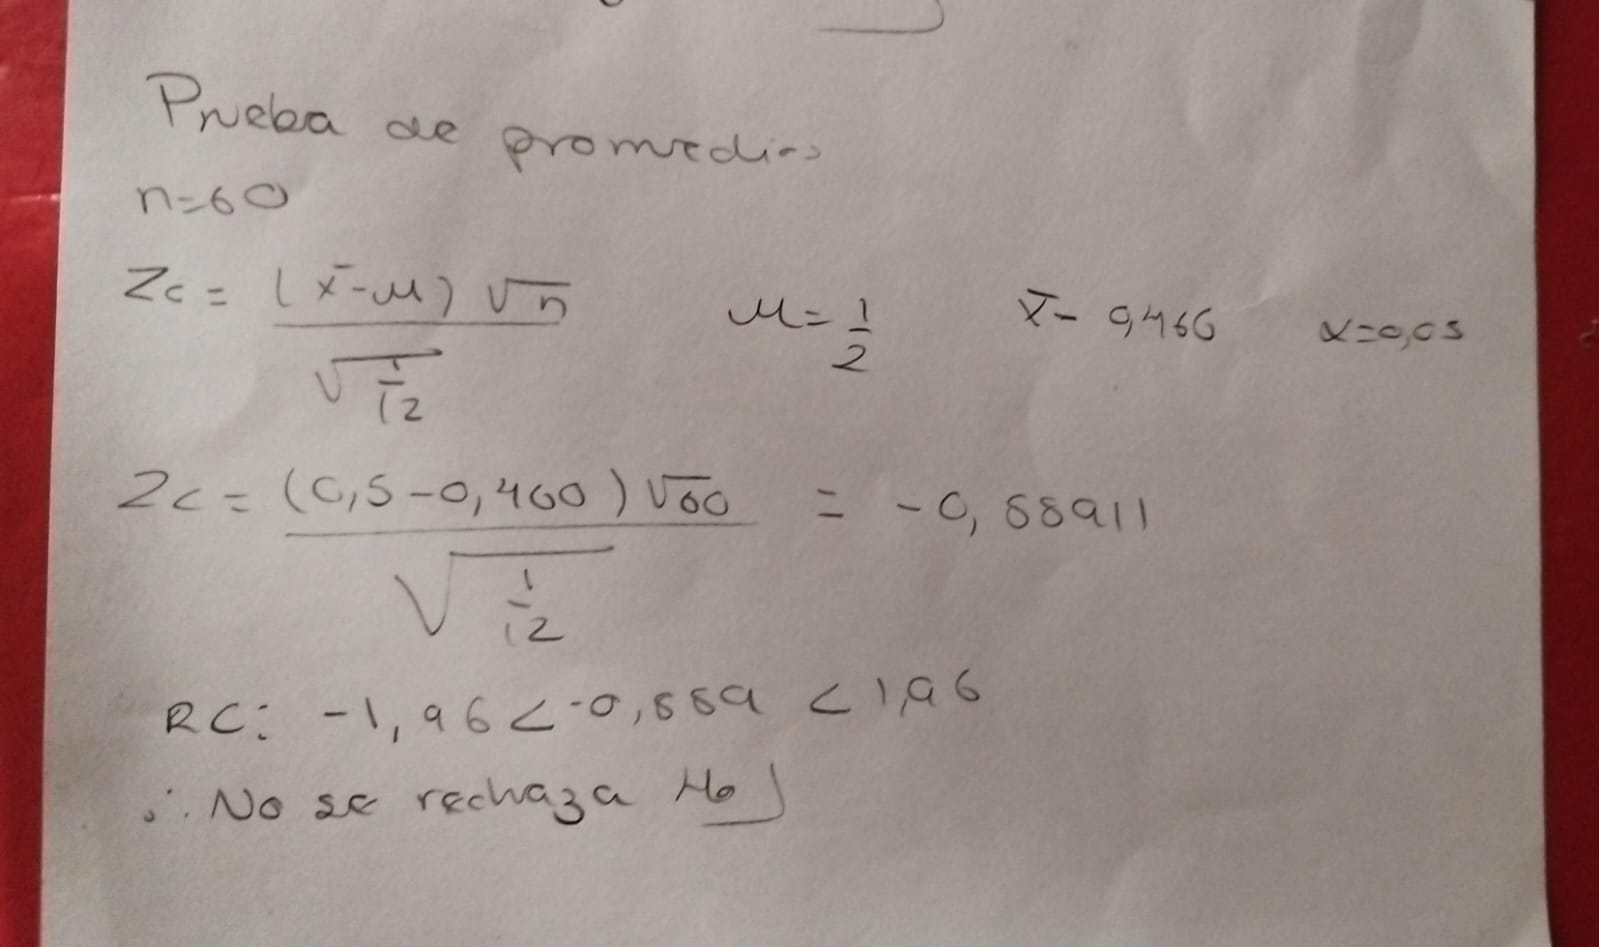 Prueba de promedios
n=60
Zc = (x̄-μ) √n / √(1/12)    μ = 1/2    x̄ - 0,466    α=0,05
Zc = (0,5-0,460) √60 / √(1/12) = -0,88911
RC: -1,96 < -0,889 < 1,96
∴ No se rechaza Ho